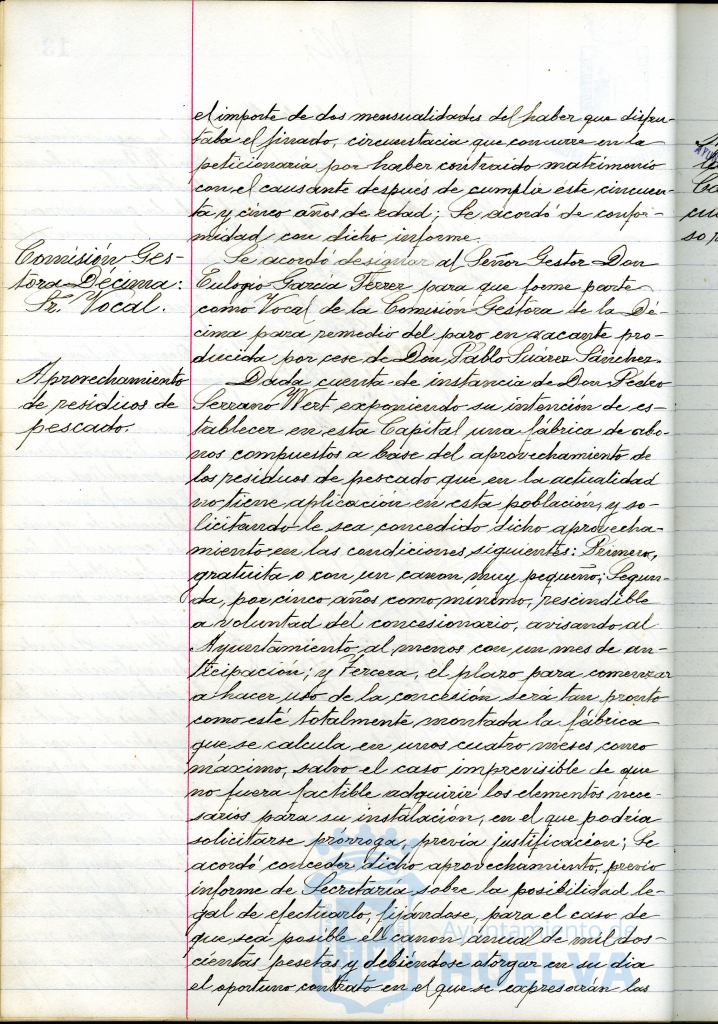 el importe de dos mensualidades del haber que disfru-
taba el finado, circunstacia que concurre en la
peticionaria por haber contraido matrimonio
con el causante despues de cumplir este cincuen-
ta y cinco años de edad; Se acordó de confor-
midad con dicho informe.
Comisión Ges-
tora Décima:
Sr. Vocal.
Se acordó designar al Señor Gestor Don
Eulogio García Ferrer para que forme parte
como Vocal de la Comisión Gestora de la Dé-
cima para remedio del paro en vacante pro-
ducida por cese de Don Pablo Suárez Sánchez.
Aprovechamiento
de residuos de
pescado.
Dada cuenta de instancia de Don Pedro
Serrano Wert exponiendo su intención de es-
tablecer en esta Capital una fábrica de abo-
nos compuestos a base del aprovechamiento de
los residuos de pescado que en la actualidad
no tiene aplicación en esta población, y so-
licitando le sea concedido dicho aprovecha-
miento en las condiciones siguientes: Primero,
gratuita o con un canon muy pequeño; Segun-
da, por cinco años como mínimo, rescindible
a voluntad del concesionario, avisando al
Ayuntamiento al menos con un mes de an-
ticipación; y Tercera, el plazo para comenzar
a hacer uso de la concesión será tan pronto
como esté totalmente montada la fábrica
que se calcula en unos cuatro meses como
máximo, salvo el caso imprevisible de que
no fuera factible adquirir los elementos nece-
sarios para su instalación, en el que podría
solicitarse prórroga, previa justificación; Se
acordó conceder dicho aprovechamiento, previo
informe de Secretaría sobre la posibilidad le-
gal de efectuarlo, fijándose, para el caso de
que sea posible el canon anual de mil dos-
cientas pesetas y debiéndose otorgar en su dia
el oportuno contrato en el que se expresarán las
Ayuntamiento de
HUELVA